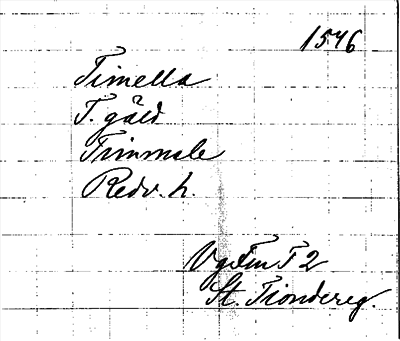 1546
Timella
T. gäld
Timmele
Redv. h.
Vg Fm T 2
St. Tiondereg.